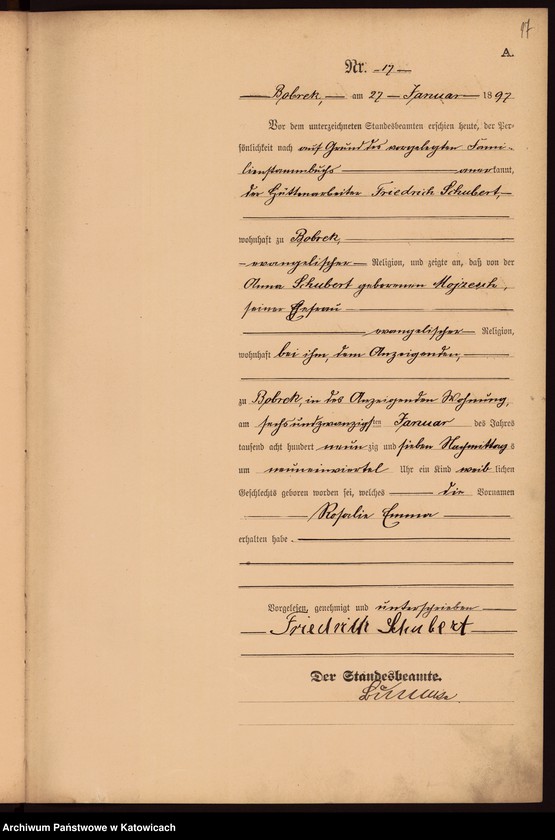 17
A.
Nr. 17
Bobrek, am 27 Januar 1897
Vor dem unterzeichneten Standesbeamten erschien heute, der Per-
sönlichkeit nach auf Grund des vorgelegten Fami-
lienstammbuchs anerkannt,
der Hüttenarbeiter Friedrich Schubert,
wohnhaft zu Bobrek,
evangelischer Religion, und zeigte an, daß von der
Anna Schubert geborenen Mojzesch,
seiner Ehefrau
evangelischer Religion,
wohnhaft bei ihm, dem Anzeigenden,
zu Bobrek, in des Anzeigenden Wohnung,
am sechsundzwanzigsten Januar des Jahres
tausend acht hundert neunzig und sieben Nachmittags
um neuneinviertel Uhr ein Kind weiblichen
Geschlechts geboren worden sei, welches die Vornamen
Rosalie Emma
erhalten habe.
Vorgelesen, genehmigt und unterschrieben
Friedrich Schubert
Der Standesbeamte.
Archiwum Państwowe w Katowicach